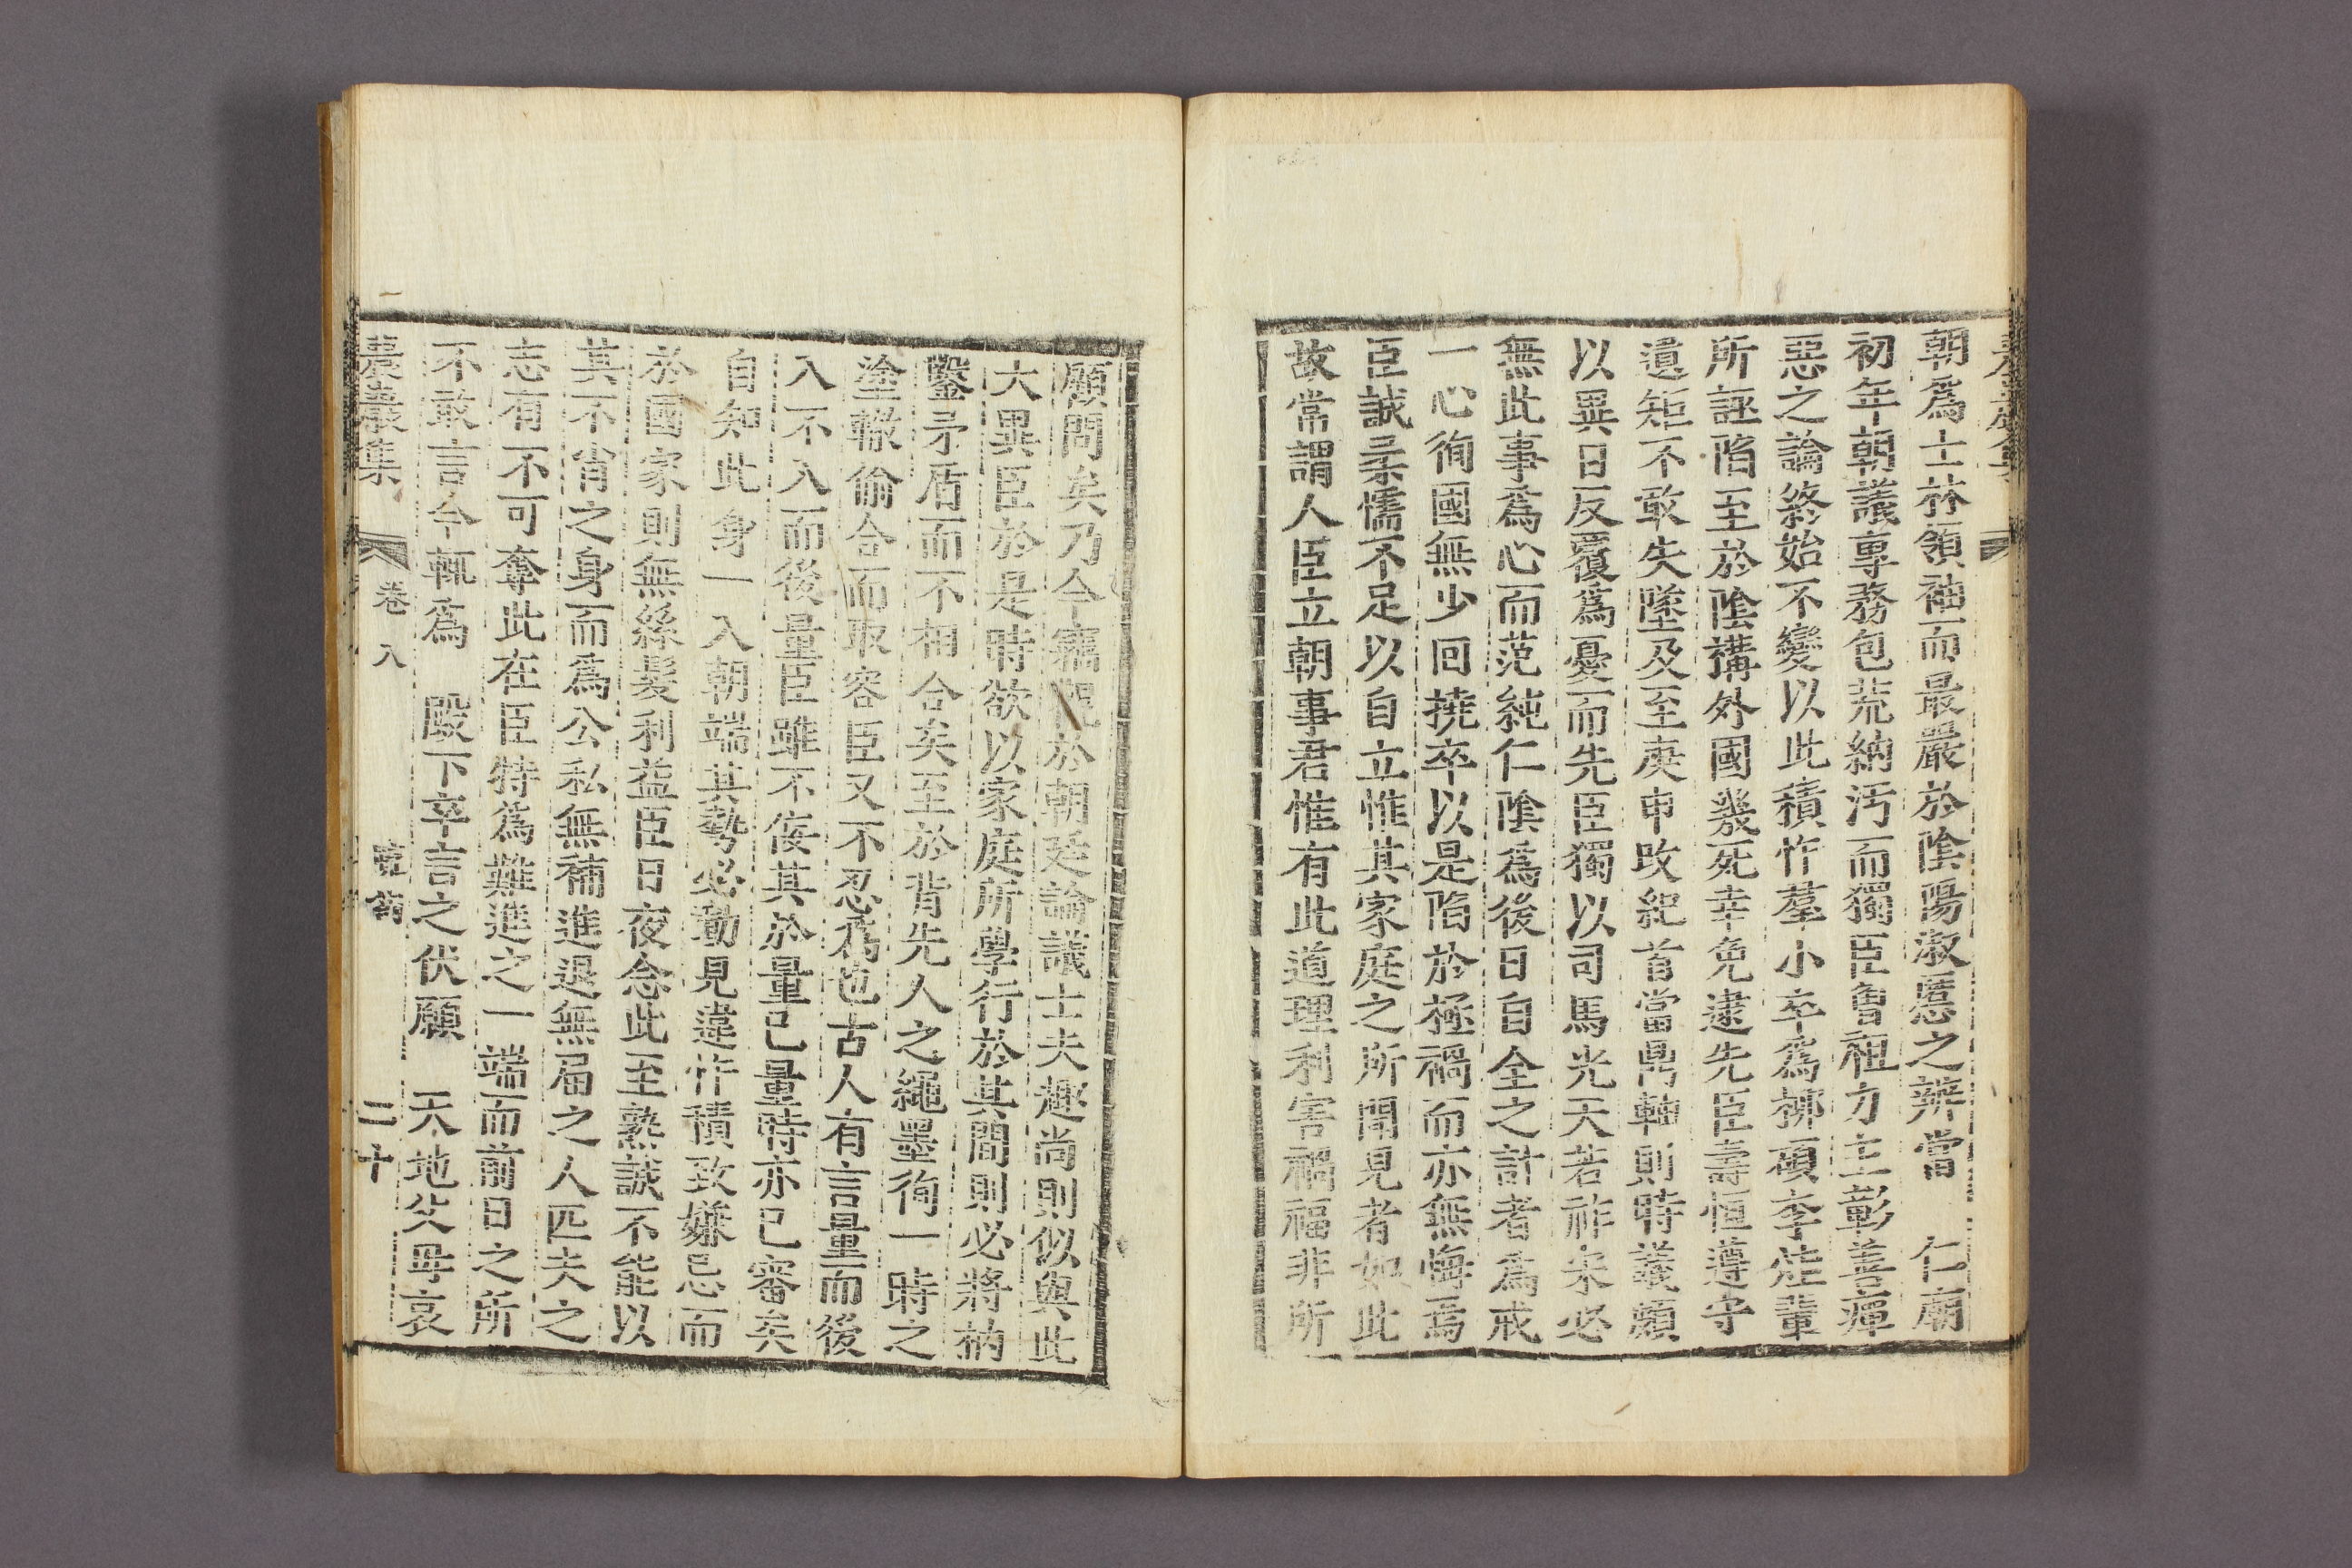 朝爲士林領袖而最嚴於陰陽淑慝之辨當 仁廟
初年朝議專務包荒納汚而獨臣曾祖方主彰善癉
惡之論終始不變以此積忤羣小卒爲㭗碩李烓輩
所誣陷至於陰構外國幾死幸免逮先臣壽恒遵守
遺矩不敢失墜及至庚申改紀首當鼎軸則時議頗
以異日反覆爲憂而先臣獨以司馬光天若祚宋必
無此事爲心而范純仁陰爲後日自全之計者爲戒
一心徇國無少回撓卒以是陷於極禍而亦無悔焉
臣誠柔懦不足以自立惟其家庭之所聞見者如此
故常謂人臣立朝事君惟有此道理利害禍福非所
顧問矣乃今竊觀於朝廷論議士夫趣尚則似與此
大異臣於是時欲以家庭所學行於其間則必將枘
鑿矛盾而不相合矣至於背先人之繩墨徇一時之
塗轍偷合而取容臣又不忍爲也古人有言量而後
入不入而後量臣雖不佞其於量己量時亦已審矣
自知此身一入朝端其勢必動見違忤積致嫌忌而
於國家則無絲髮利益臣日夜念此至熟誠不能以
其不肖之身而爲公私無補進退無届之人匹夫之
志有不可奪此在臣特爲難進之一端而前日之所
不敢言今輒爲 殿下卒言之伏願 天地父母哀
農巖集 卷八 疏箚 二十